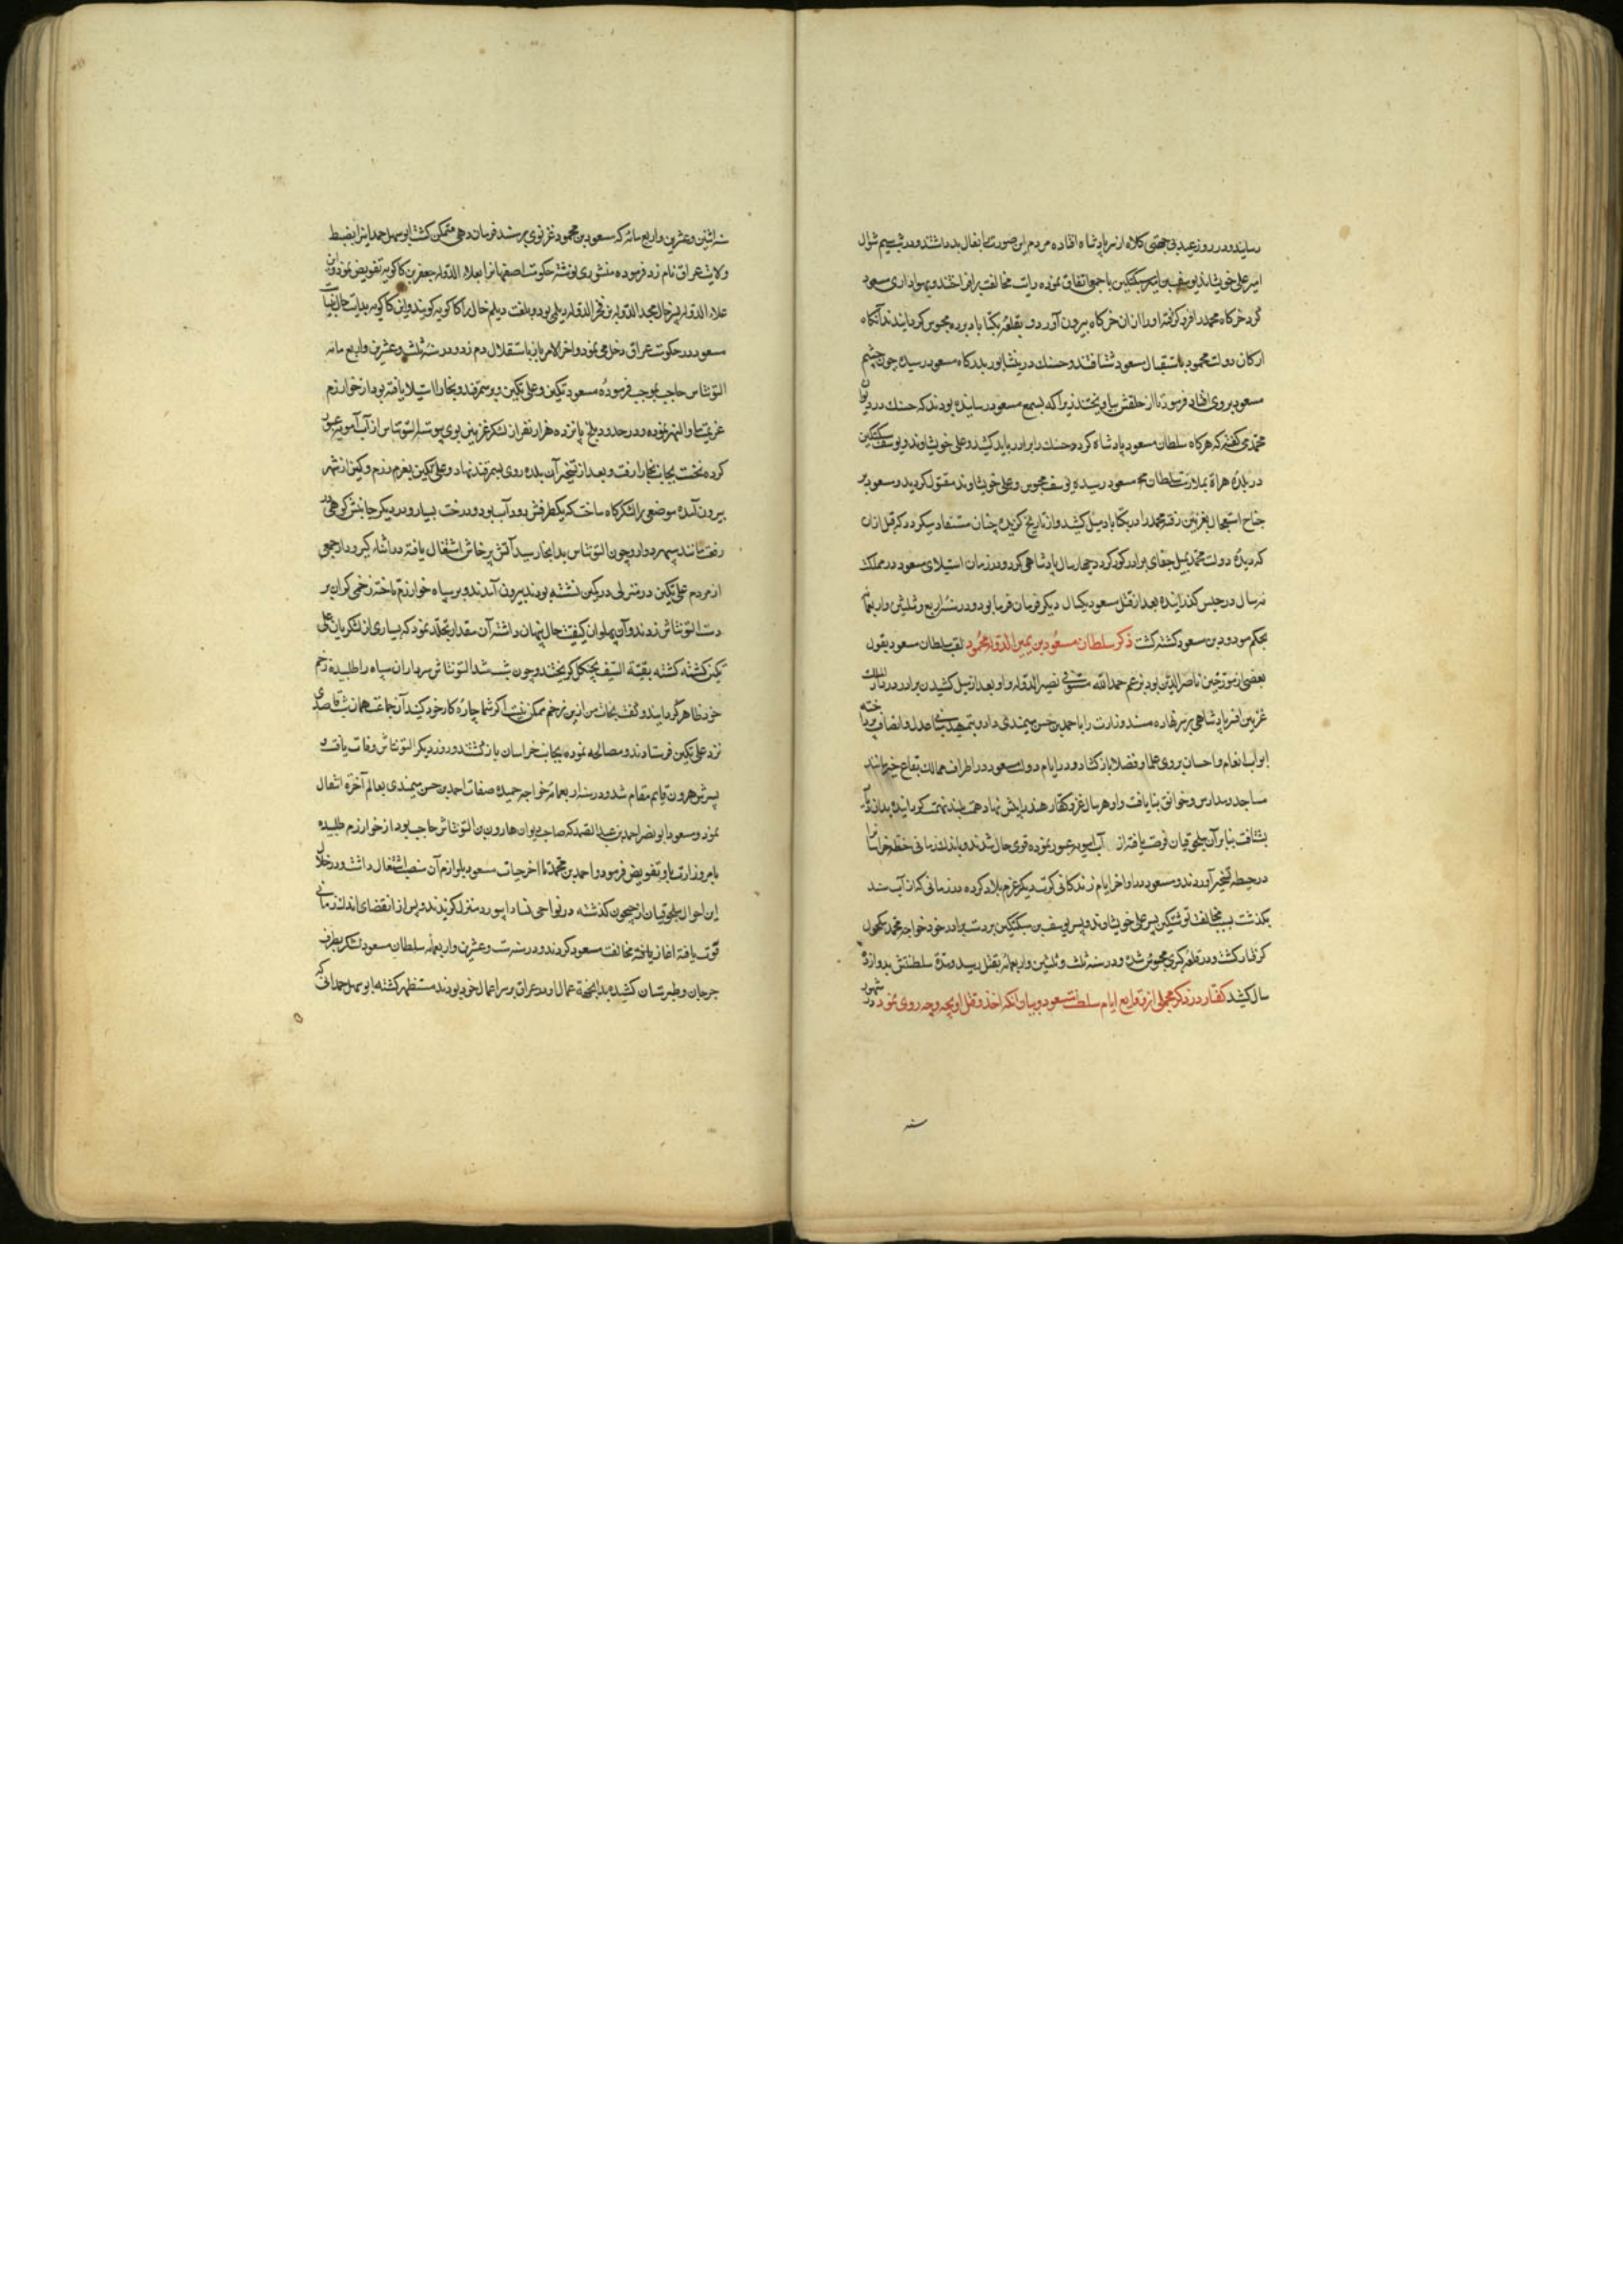 رسانید و در روز عید بی جهتی کلاه از سر پادشاه افتاده مردم این صورت را بفال بد داشتند و در شب سیم شوال
امیر علی خویشاوند و یوسف بن سبکتکین با جمعی اتفاق نموده رایت مخالفت برافراختند و بهواداری مسعود
گرد خرگاه محمد را فرو گرفته او را از آن خرگاه بیرون آوردند و بقلعه تکناباد برده محبوس گردانیدند آنگاه
ارکان دولت محمود باستقبال مسعود شتافتند و حسنک در نیشابور بدرگاه مسعود رسیده چون چشم
مسعود بر وی افتاد فرمود تا از حلقش بیاویختند زیرا که بسمع مسعود رسانیده بودند که حسنک در دیوان
محمد می گفته که هرگاه سلطان مسعود پادشاه گردد حسنک را بر دار باید کشید و علی خویشاوند و یوسف سبکتکین
در بلده هراة بملازمت سلطان مسعود رسیده یوسف محبوس و علی خویشاوند مقتول گردید و مسعود بر
جناح استعجال بغزنین رفته محمد را در تکناباد میل کشید و از تاریخ گزیده چنان مستفاد میگردد که قبل ازان
که دیده دولت محمد بمیل جفای برادر کور گردد چهار سال پادشاهی کرد و در زمان استیلای مسعود در مملکت
نه سال در حبس گذرانیده بعد از قتل مسعود یکسال دیگر فرمان فرما بود و در سنه اربع و ثلثین و اربعمائه
بحکم مودود بن مسعود کشته گشت ذکر سلطان مسعود بن یمین الدوله محمود لقب سلطان مسعود بقول
بعضی از مورخین ناصر الدین بود و بزعم حمد الله مستوفی نصیر الدوله و او بعد از میل کشیدن برادر در دار الملک
غزنین افسر پادشاهی بر سر نهاده مسند وزارت را باحمد بن حسن میمندی داد و بتمهید بساط عدل و انصاف پرداخته
ابواب انعام و احسان بر روی علما و فضلا باز گشاد و در ایام دولت مسعود در اطراف ممالک بقاع خیر مانند
مساجد و مدارس و خوانق بنا یافت و او هر سال غزو کفار هند را پیش نهاد همت بلند نهمت گردانیده بدان دیار
شتافت بنا بر آن سلجوقیان فرصت یافته از آب آمویه عبور نموده قوی حال شدند و باندک زمانی خطه خراسان را
در حیطه تسخیر آوردند و مسعود در اواخر ایام زندگانی کرت دیگر عزم بلاد کرده در زمانی که از آب سند
بگذشت بسبب مخالفت نوشتکین پسر علی خویشاوند و پسر یوسف بن سبکتکین بر دست برادر خود خواجه محمد مکحول
گرفتار گشت و در قلعه کری محبوس شده و در سنه ثلث و ثلثین و اربعمائه بقتل رسید و مدة سلطنتش بدوازده
سال کشید گفتار در ذکر مجملی از وقایع ایام سلطنت مسعود و بیان آنکه اخذ و قتل او بچه وجه روی نمود در شهور
سنه
سنه اثنین و عشرین و اربع مائه که مسعود بن محمود غزنوی بر مسند فرمان دهی متمکن گشت ابو سهل حمدانی را بضبط
ولایت عراق نامزد فرموده منشوری نوشته حکومت اصفهان را بعلاء الدوله جعفر بن کاکویه تفویض نمود و این
علاء الدوله پسر خال مجد الدوله بن فخر الدوله دیلمی بود و بلغت دیلم خال را کاکویه گویند و ابن کاکویه بدایت حال نیابت
مسعود در حکومت عراق دخل می نمود و اخر الامر بازباستقلال دم زد و در سنه ثلث و عشرین و اربع مائه
التونتاش حاجب بموجب فرموده مسعود تکین و علی تکین و بر سمرقند و بخارا استیلا یافته بود از خوارزم
عزیمت ماوراء النهر نموده و در حدود بلخ پانزده هزار نفر از لشکر غزنین بوی پیوست التونتاش از آب آمویه عبور
کرده نخست بجانب بخارا رفت و بعد از تسخیر آن بلده روی بسمرقند نهاد و علی تکین بعزم رزم و کین از شهر
بیرون آمده موضعی را لشکرگاه ساخت که یکطرفش رود آب بود و درخت بسیار و در دیگر جانبش کوهی در
رفعت مانند سپهر دوار و چون التونتاس بدانجا رسید آتش پرخاش اشتعال یافته در اثناء گیر و دار جمعی
از مردم علی تکین در منزلی در کمین نشسته بودند بیرون آمدند و بر سپاه خوارزم تاخته زخمی گران بر
دست التونتاش زدند و آن پهلوان کیفیت حال پنهان داشته آن مقدار تجلد نمود که بسیاری از لشکریان علی
تکین کشته گشته بقیة السیف بجنگل گریختند و چون شب شد التونتاش سرداران سپاه را طلبیده زخم
خود ظاهر گردانید و گفت نجات من ازین زخم ممکن نیست اکنون شما چاره کار خود کنید آن جماعت همان شب قاصدی
نزد علی تکین فرستادند و مصالحه نموده بجانب خراسان باز گشتند و روز دیگر التونتاش وفات یافت و
پسرش هرون قایم مقام شد و در سنه اربعمائه خواجه حمیده صفات احمد بن حسن میمندی بعالم آخرة انتقال
نمود و مسعود ابو نصر احمد بن عبد الصمد که صاحب دیوان هارون بن التونتاش حاجب بود از خوارزم طلبیده
بامر وزارت باو تفویض فرمود و احمد بن محمد تا اخر حیات مسعود بلوازم آن منصب اشتغال داشت و در خلال
این احوال سلجوقیان از جیحون گذشته در نواحی نسا و ابیورد منزل گزیدند و پس از انقضای اندک زمانی
قوت یافته اغاز مخالفت مسعود کردند و در سنه ست و عشرین و اربعمائه سلطان مسعود لشکر بطرف
جرجان و طبرستان کشیده بدانجهة عمال او در عراق بر سر اعمال خود بودند مستظهر گشته ابو سهل حمدانی که